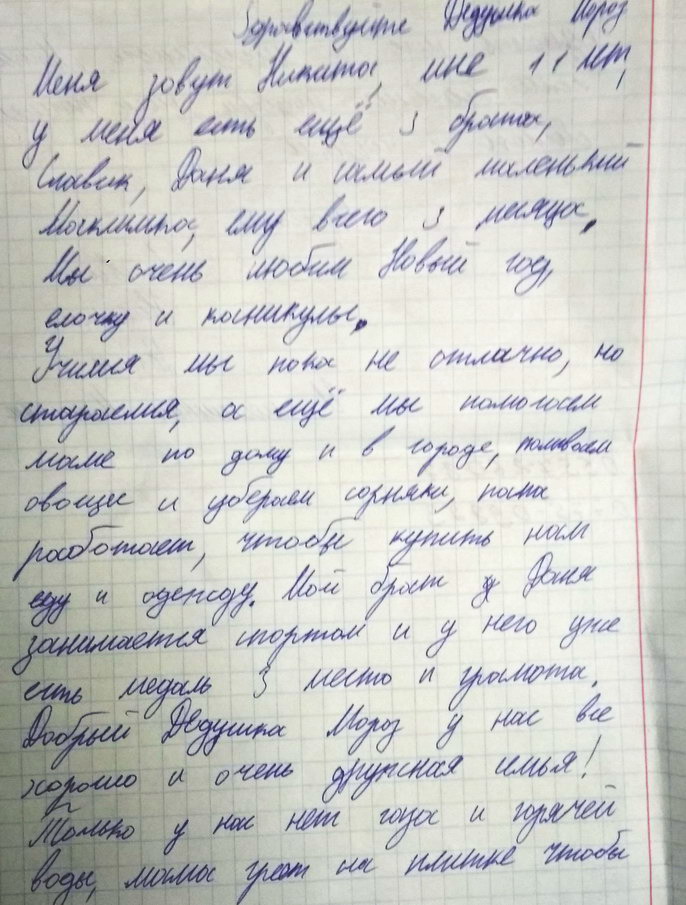 Здравствуйте Дедушка Мороз
Меня зовут Никита, мне 11 лет,
у меня есть ещё 3 брата,
Славик, Даня и самый маленький
Максимка, ему всего 3 месяца.
Мы очень любим Новый год,
елочку и каникулы.
Учимся мы пока не отлично, но
стараемся, а ещё мы помогаем
маме по дому и в городе, поливаем
овощи и убераем сорняки, папа
работает, чтобы купить нам
еду и одежду. Мой брат Даня
занимается спортом и у него уже
есть медаль 3 место и грамота.
Добрый Дедушка Мороз у нас все
хорошо и очень дружная семья!
Только у нас нет газа и горячей
воды, мама греет на плитке чтобы